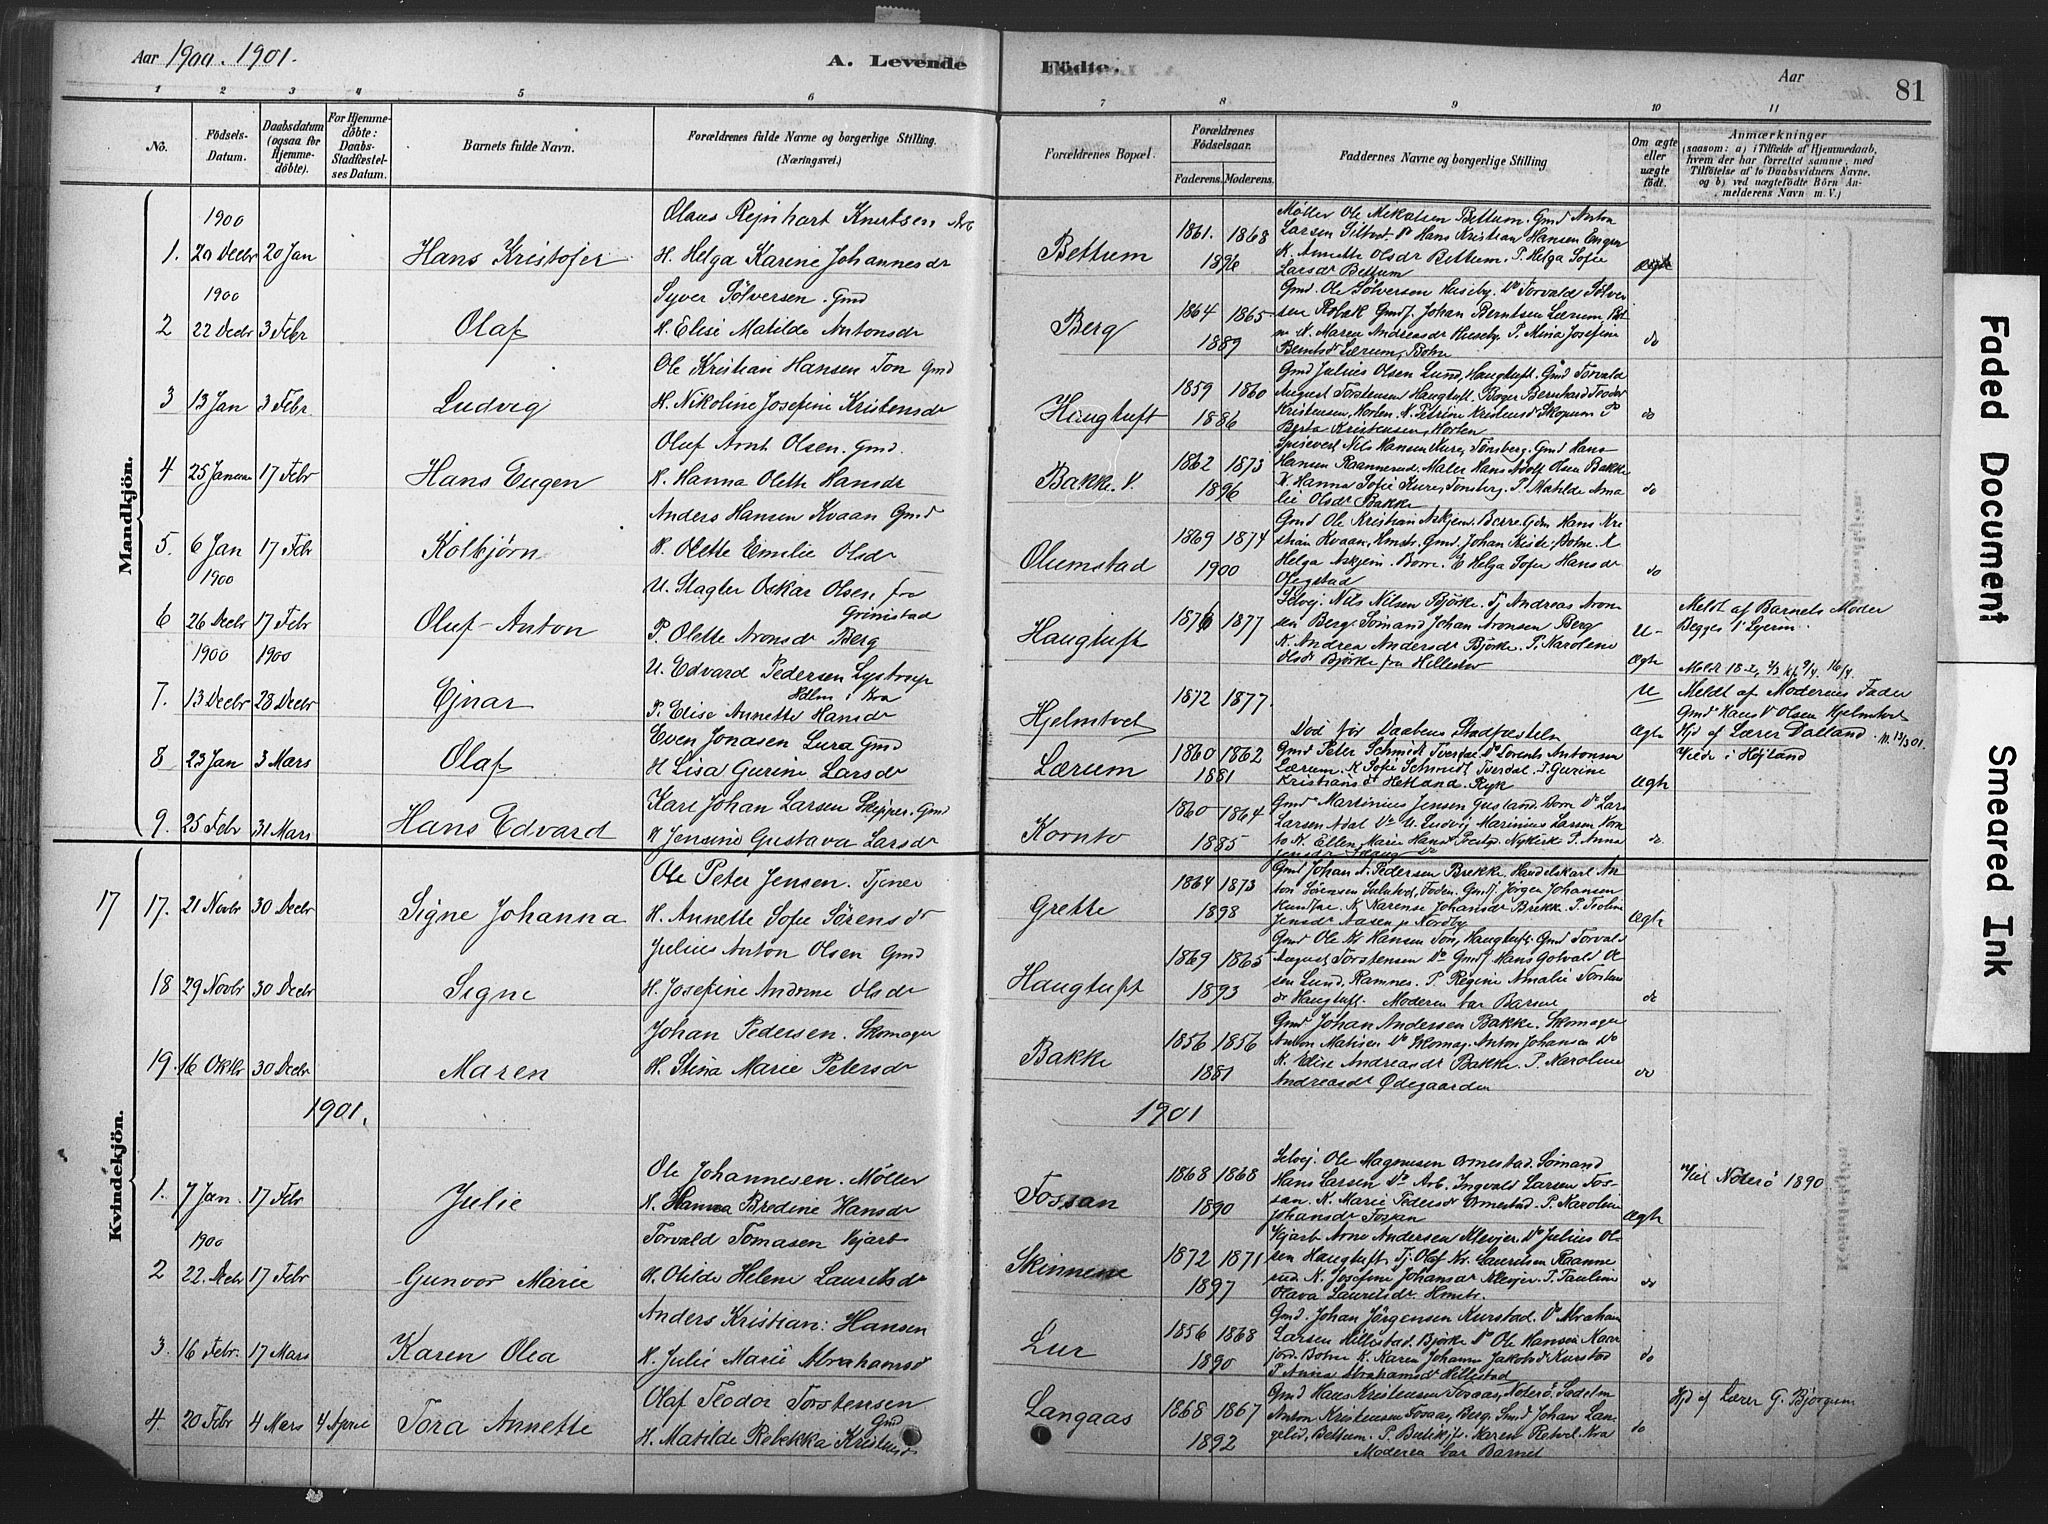 Aar 1900. 1901.
A. Levende Födte.
Aar
81
1 2 3 4 5 6 7 8 9 10 11
No.
Födsels-Datum.
Daabsdatum (ogsaa for Hjemme-döbte).
For Hjemme-döbte: Daabs-Stadfæstel-ses Datum.
Barnets fulde Navn.
Forældrenes fulde Navne og borgerlige Stilling. (Næringsvei.)
Forældrenes Bopæl.
Forældrenes Födselsaar.
Faderens. Moderens.
Faddernes Navne og borgerlige Stilling
Om ægte eller uægte födt.
Anmærkninger
(saasom: a) i Tilfælde af Hjemmedaab, hvem der har forrettet samme, med Tilföielse af to Daabsvidners Navne. og b) ved uægtefödte Börn An-melderens Navn m. V.)
Mandkjön.
1900
1. 20 Decbr 20 Jan Hans Kristofer
Olaus Rejnhart Knutsen Arb
H. Helga Karine Johannesdr
Bettum 1861. 1868 1896
Møller Ole Mikalsen Bettum. Gmd Anton
Larsen Hans Kristian Hansen Enger
K. Annette Olsdr Bettum. P. Helga Sofie
Larsdr Bettum
ægte
1900
2 22 Decbr 3 Febr Olaf
Syver Sølversen. Gmd
H. Elise Matilde Antonsdr
Berg 1864 1865 1889
Gmd. Ole Sølversen Huseby. Do Torvald Sølver
sen Gmdf. Johan Berntsen Lærum
K. Maren Andreasdr Huseby P. Mina Josefine
Berntsdr Lærum, Botne
do
3 13 Jan 3 Febr Ludvig
Ole Kristian Hansen Ton Gmd
H. Nikoline Josefine Kristensdr
Haugtuft 1859 1860 1886
Gmd Julius Olsen Lund, Haugtuft. Gmd Torvald
August Torstensen Haugtuft. Bager Bernhard Teodor
Kristensen, Horten. K. Petrine Kristensdr Skopum P
Berta Kristensen, Horten
do
4 25 Januar 17 Febr Hans Eugen
Oluf Arnt Olsen. Gmd.
H. Hanna Olette Hansdr
Bakke. V. 1862 1873 1896
Spisevert Nils Hansen Kure, Tønsberg. Gmd Hans
Hansen Raannerud. Maler Hans Adolf Olsen Bakke
K. Hanna Sofie Kure, Tønsberg. P. Matilde Ama
lie Olsdr Bakke
do
5. 6 Jan 17 Febr Kolbjørn
Anders Hansen Kvaan Gmd
H. Olette Emilie Olsdr
Olumstad 1869 1874 1900
Gmd Ole Kristian Askjem. Borre. Hans Kri
stian Kvaan, Gmd. Johan Botne. K
Helga Askjem. Borre. P Helga Sofie Hansdr
do
1900
6 26 Decbr 17 Febr Oluf-Anton
U. Slagter Oskar Olsen fra
Grimistad
P. Olette Aronsdr Berg
Haugtuft 1876 1877
Selvej. Nils Nilsen Bjørke. Tj Andreas Aron
sen Berg. Sømand Johan Aronsen Berg
K. Andrea Andersdr Bjørke. P. Karoline
Olsdr Bjørke fra Hillestad
U-
Ægte
Meldt af Barnets Moder
Begges 1' Lejerm.
1900 1900
7. 13 Decbr 28 Decbr Ejnar
U. Edvard Pedersen Lystrup
Hdlm i Kra
P. Elise Annette Hansdr
Hjelmtvet 1872 1877.
Død før Daabens Stadfæstelse
U
Ægte
Meldt af Moderens Fader
Gmd Hans V Olsen Hjelmtvet
Hjd af Lærer Dalland. m. 13/3 01.
8 23 Jan 3 Mars Olaf
Even Jonasen Lura Gmd
H Lisa Gurine Larsdr
Lærum 1860 1862 1881
Gmd Peter Schmidt Tverdal. Do Lorents Antonsen
Lærum. K Sofie Schmidt Tverdal. P. Gurine
Kristiansdr Hetland. Ryk
Ægte
Viede i Højland
9. 25 Febr 31 Mars Hans Edvard
Karl Johan Larsen Skipper. Gmd
H Jensine Gustava Larsdr
Kornto 1860 1864 1885
Gmd Martinius Jensen Gusland. Borre Do Lars
Larsen Adal Do U. Ludvig Marinius Larsen Korn
to K. Ellen Marie Hansdr Prestg. Nykirk P. Anna
Jensdr Haug Do
do
Kvindekjön.
17 17. 21 Novbr 30 Decbr Signe Johanna
Ole Peter Jensen. Tjener
H. Annette Sofie Sörensdr
Grette 1864 1873 1898
Gmd Johan A. Pedersen Brekke. Handelskarl An
ton Sörensen Gmdf. Jörgen Johansen
K Karense Johansdr Brekke. P. Teoline
Jensdr Aasen p Nordby
Ægte
18 29 Novbr 30 Decbr Signe
Julius Anton Olsen Gmd
H. Josefine Andrine Olsdr
Haugtuft 1869 1865 1893
Gmd Ole Kr Hansen Ton, Haugtuft. Gmd Torvald
August Torstensen Do Gmdf Hans Gotvald Ol
sen Lund, Ramnes. P. Regine Amalie Torsten
dr Haugtuft. Moderen bar Barnet
do
19. 16 Oktbr 30 Decbr Maren
Johan Pedersen. Skomager
H. Stina Marie Petersdr
Bakke 1856 1856 1881
Gmd Johan Andersen Bakke. Skomager
Anton Matisen Do Skomag. Anton Johansen Do
K. Elise Andreasdr Bakke. P. Karoline
Andreasdr Ødegaarden
do
1901. 1901
1. 7 Jan. 17 Febr Julie
Ole Johannesen. Møller
H. Hanna Bredine Hansdr
Fossan 1868 1868 1890
Selvej. Ole Magnusen Ormestad. Sømand
Hans Larsen Do Arb. Ingvald Larsen Fos-
san. K. Marie Pedersdr Ormestad. P. Karoline
Johansdr Fossan
Ægte
Viet Nøterø 1890
1900
2 22. Decbr 17 Febr Gunvor Marie
Torvald Tomasen Vejarb
H. Otilde Helene Lauritsdr
Skinnene 1872 1871 1897
Vejarb Arne Andersen Klevjer. Do Julius Ol
sen Haugtuft. Tj. Olaf Kr. Lauritsen Raanne
rud. K. Josefine Johansdr Klevjer. P. Pauline
Olava Lauritsdr. Hmstr.
do
3. 16 Febr. 17 Mars Karen Olea
Anders Kristian: Hansen
H. Julie Marie Abrahamsdr
Lur 1856 1868 1890
Gmd. Johan Jörgensen Kurstad. Do Abraham
Larsen Hillestad. Bjørke Do Ole Hansen
Botne K. Karen Johanne Jakobsdr Kurstad
P Anna Abrahamsdr Hillestad
do
4. 20 Febr 4 Mars 4 April Tora Annette
Olaf Teodor Torstensen
Gmd
H. Matilde Rebekka Kristensdr
Langaas 1868 1867 1892
Gmd Hans Kristensen Fossan, Nøterø. Sadelm
Anton Kristensen Fossan, Berg. Smed Johan Lan
gelid, Bettum. P. Butikjf. Karen Kra
Moderen bar Barnet
do
Hjd af Lærer G. Bjørgum
Faded Document
Smeared Ink